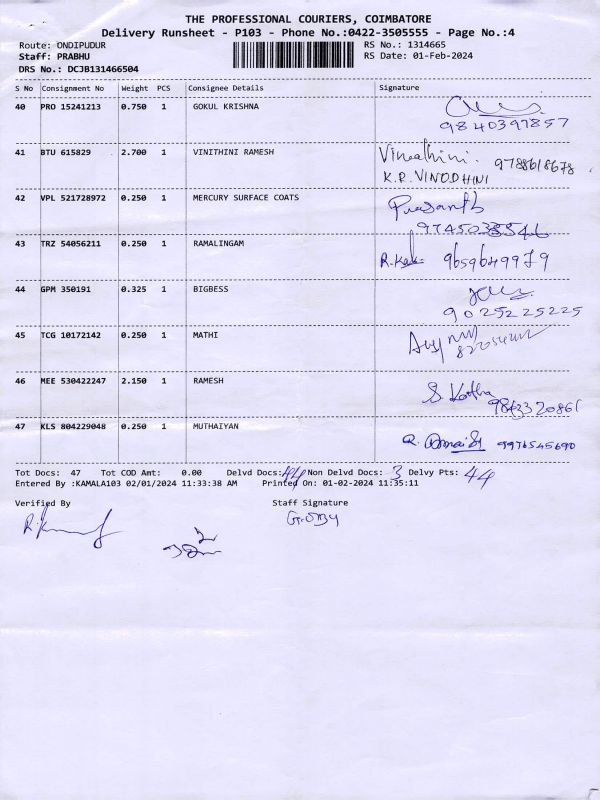 THE PROFESSIONAL COURIERS, COIMBATORE
Delivery Runsheet - P103 - Phone No.:0422-3505555 - Page No.:4
Route: ONDIPUDUR RS No.: 1314665
Staff: PRABHU RS Date: 01-Feb-2024
DRS No.: DCJB131466504
S No Consignment No Weight PCS Consignee Details Signature
40 PRO 15241213 0.750 1 GOKUL KRISHNA
9840397857
41 BTU 615829 2.700 1 VINITHINI RAMESH 9788618678
K.R. VINODHINI
42 VPL 521728972 0.250 1 MERCURY SURFACE COATS Prasanth
43 TRZ 54056211 0.250 1 RAMALINGAM 9659649979
44 GPM 350191 0.325 1 BIGBESS
9025225225
45 TCG 10172142 0.250 1 MATHI
46 MEE 530422247 2.150 1 RAMESH
9843320861
47 KLS 804229048 0.250 1 MUTHAIYAN 9976545690
Tot Docs: 47 Tot COD Amt: 0.00 Delvd Docs: 44 Non Delvd Docs: 3 Delvy Pts: 44
Entered By :KAMALA103 02/01/2024 11:33:38 AM Printed On: 01-02-2024 11:35:11
Verified By Staff Signature